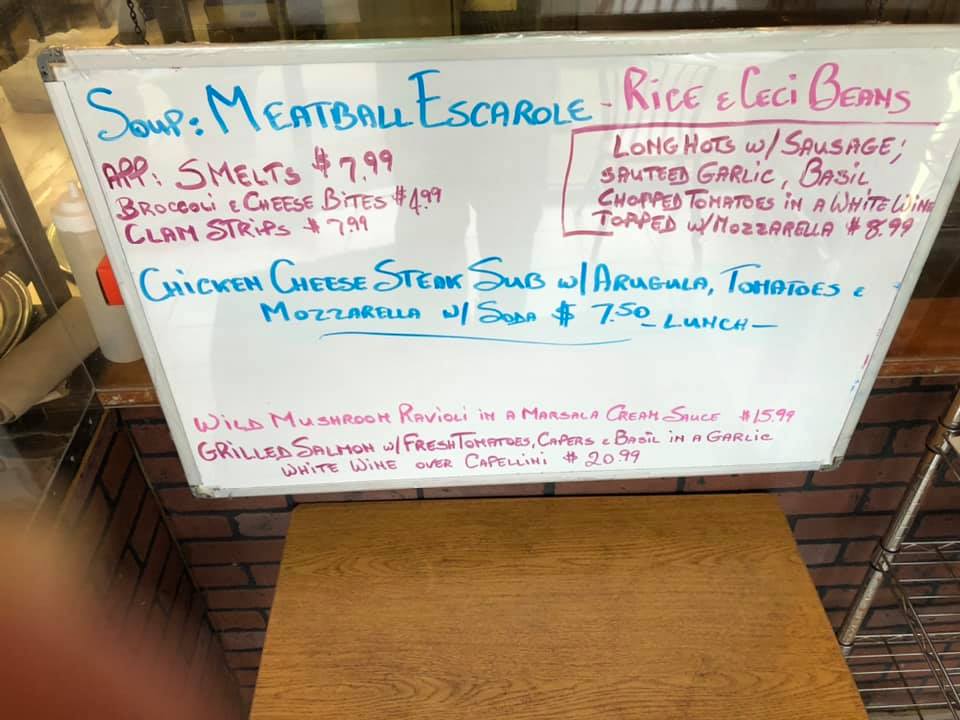 SOUP: MEATBALL ESCAROLE - RICE & CECI BEANS
APP: SMELTS $7.99
BROCCOLI & CHEESE BITES $4.99
CLAM STRIPS $7.99
LONG HOTS W/ SAUSAGE,
SAUTEED GARLIC, BASIL
CHOPPED TOMATOES IN A WHITE WINE
TOPPED W/ MOZZARELLA $8.99
CHICKEN CHEESE STEAK SUB W/ ARUGULA, TOMATOES &
MOZZARELLA W/ SODA $7.50 - LUNCH -
WILD MUSHROOM RAVIOLI IN A MARSALA CREAM SAUCE $15.99
GRILLED SALMON W/ FRESH TOMATOES, CAPERS & BASIL IN A GARLIC
WHITE WINE OVER CAPELLINI $20.99